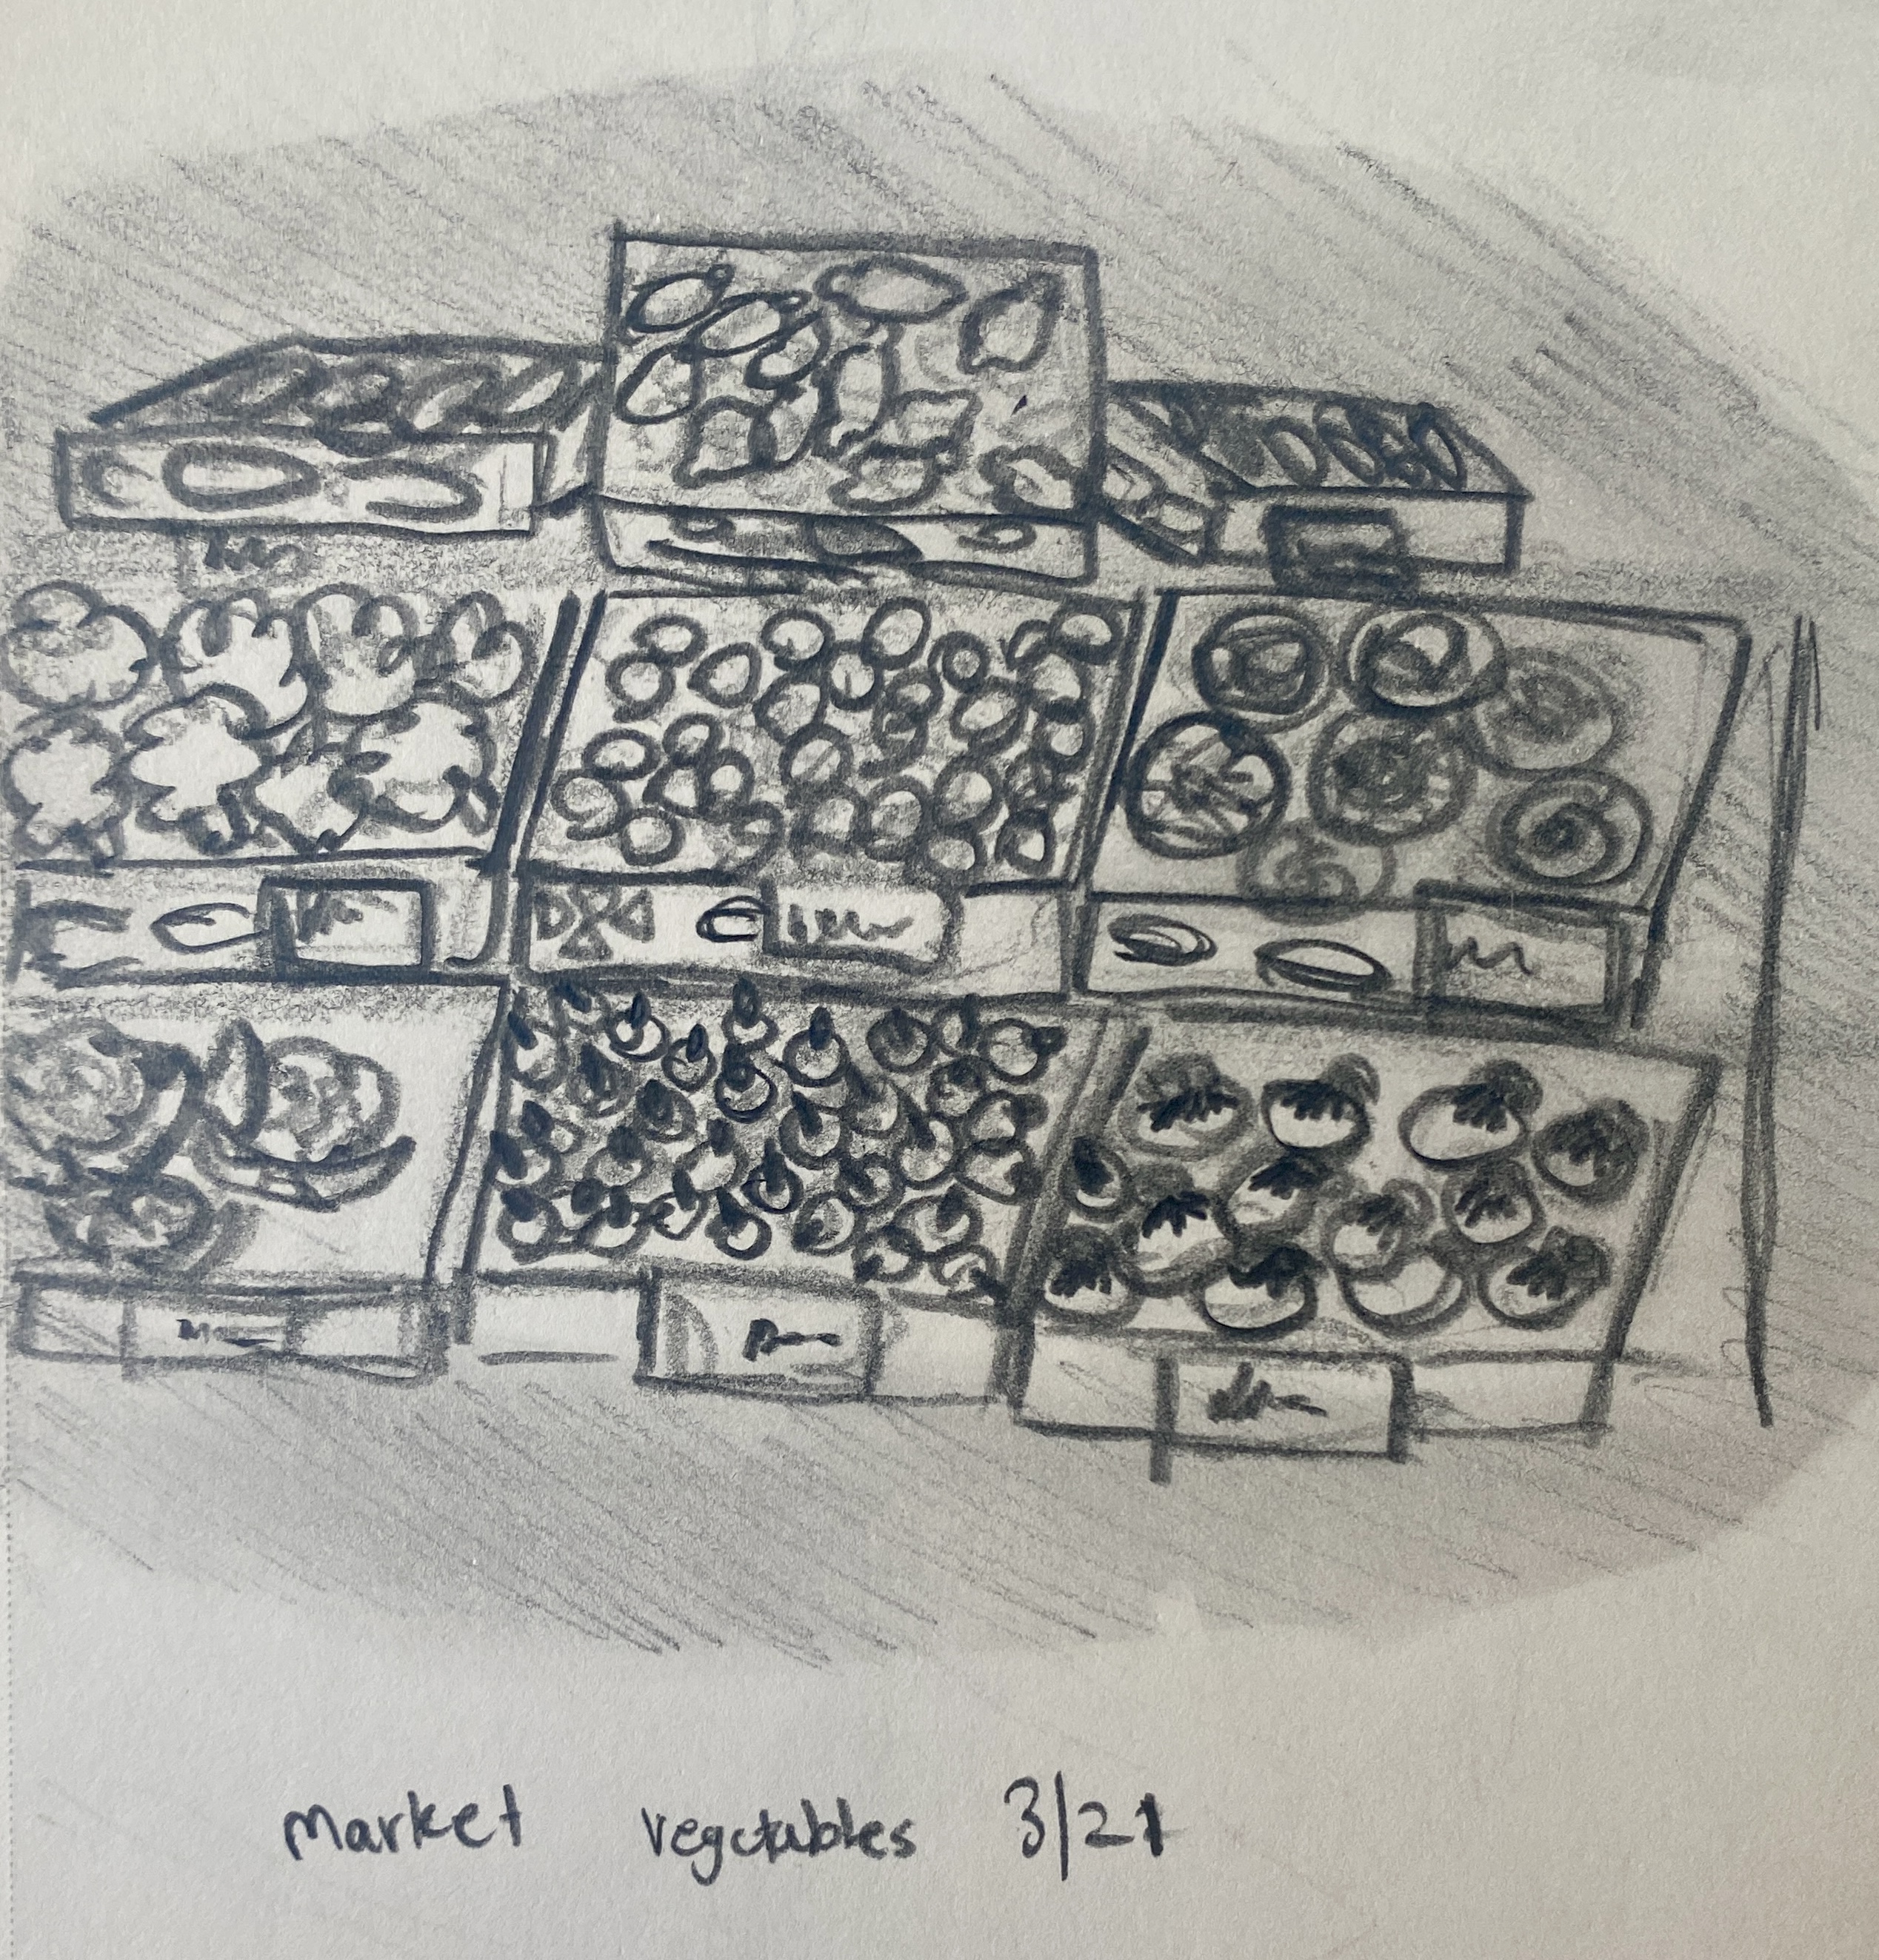 Market vegetables 3/21